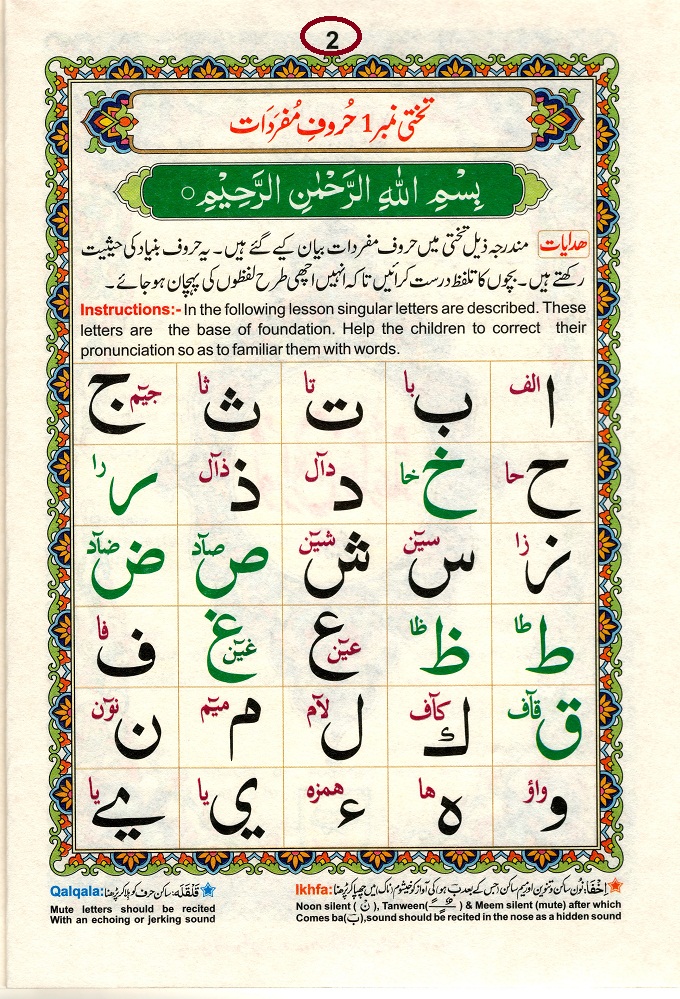 2
تختی نمبر 1 حُروفِ مُفرَدَات
بِسْمِ اللّٰهِ الرَّحْمٰنِ الرَّحِيْمِ ○
ھدایات مندرجہ ذیل تختی میں حروف مفردات بیان کیے گئے ہیں۔ یہ حروف بنیاد کی حیثیت
رکھتے ہیں۔ بچوں کا تلفظ درست کرائیں تا کہ انہیں اچھی طرح لفظوں کی پہچان ہو جائے۔
Instructions:- In the following lesson singular letters are described. These
letters are the base of foundation. Help the children to correct their
pronunciation so as to familiar them with words.
ا الف ب با ت تا ث ثا ج جیٓم
ح حا خ خا د دآل ذ ذآل ر را
ز زا س سیٓن ش شیٓن ص صآد ض ضآد
ط طا ظ ظا ع عیٓن غ غیٓن ف فا
ق قآف ك کآف ل لآم م میٓم ن نوٓن
و واؤ ہ ھا ء ھمزہ ی یا ے یا
اِخْفَا: نون ساکن و تنوین اور میم ساکن جس کے بعد ب ہو کی آواز کو خیشوم (ناک) میں چھپا کر پڑھنا Ikhfa:
Noon silent ( نْ ), Tanween( ـًـٍـٌ ) & Meem silent (mute) after which
Comes ba(ب),sound should be recited in the nose as a hidden sound
قَلْقَلَه: ساکن حرف کو ہلا کر پڑھنا Qalqala:
Mute letters should be recited
With an echoing or jerking sound